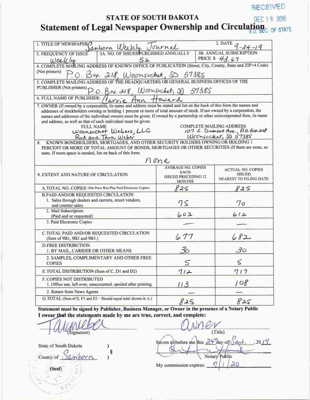 RECEIVED
DEC 18 2019
S.D. SEC. OF STATE
STATE OF SOUTH DAKOTA
Statement of Legal Newspaper Ownership and Circulation
1. TITLE OF NEWSPAPER Sanborn Weekly Journal
2. DATE 9-24-19
3. FREQUENCY OF ISSUE Weekly
3A. NO. OF ISSUES PUBLISHED ANNUALLY 52
3B. ANNUAL SUBSCRIPTION PRICE $ 43.67
4. COMPLETE MAILING ADDRESS OF KNOWN OFFICE OF PUBLICATION (Street, City, County, State and ZIP+4 Code)
(Not printers) P.O. Box 218, Woonsocket, SD 57385
5. COMPLETE MAILING ADDRESS OF THE HEADQUARTERS OR GENERAL BUSINESS OFFICES OF THE
PUBLISHER (Not printers) P.O. Box 218, Woonsocket, SD 57385
6. FULL NAME OF PUBLISHER: Carrie Ann Howard
7. OWNER (If owned by a corporation, its name and address must be stated and list on the back of this form the names and
addresses of stockholders owning or holding 1 percent or more of total amount of stock. If not owned by a corporation, the
names and addresses of the individual owners must be given. If owned by a partnership or other unincorporated firm, its name
and address, as well as that of each individual must be given.
FULL NAME
COMPLETE MAILING ADDRESS
Woonsocket Webers, LLC
Rod and Tara Weber
P.O. Box 218
Woonsocket, SD 57385
8. KNOWN BONDHOLDERS, MORTGAGES, AND OTHER SECURITY HOLDERS OWNING OR HOLDING 1
PERCENT OR MORE OF TOTAL AMOUNT OF BONDS, MORTGAGES OR OTHER SECURITIES (If there are none, so
state. If more space is needed, list on back of this form.
none
9. EXTENT AND NATURE OF CIRCULATION
AVERAGE NO. COPIES EACH ISSUED PRECEDING 12 MONTHS
ACTUAL NO. COPIES ISSUED NEAREST TO FILING DATE
A. TOTAL NO. COPIES (Net Press Run Plus Paid Electronic Copies) 825 825
B. PAID AND/OR REQUESTED CIRCULATION
1. Sales through dealers and carriers, street vendors,
and counter sales 75 70
2. Mail Subscription
(Paid and or requested) 602 612
3. Paid Electronic Copies — —
C. TOTAL PAID AND/OR REQUESTED CIRCULATION
(Sum of 9B1, 9B2 and 9B3.) 677 682
D. FREE DISTRIBUTION
1. BY MAIL, CARRIER OR OTHER MEANS 30 30
2. SAMPLES, COMPLIMENTARY AND OTHER FREE
COPIES 5 5
E. TOTAL DISTRIBUTION (Sum of C, D1 and D2) 712 717
F. COPIES NOT DISTRIBUTED
1. Office use, left over, unaccounted, spoiled after printing 113 108
2. Return from News Agents — —
G. TOTAL (Sum of E, F1 and F2 - Should equal total shown in A.) 825 825
Statement must be signed by Publisher, Business Manager, or Owner in the presence of a Notary Public
I swear that the statements made by me are true, correct, and complete:
Owner
(Signature) (Title)
State of South Dakota )
County of Sanborn )
§
Sworn to before me this 24 day of Sept. 2019
Notary Public
(Seal)
My commission expires: 7/1/20